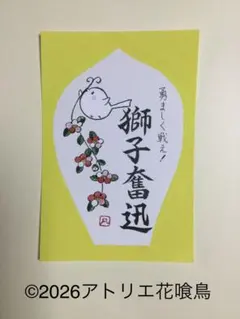 勇ましく戦え!
獅子奮迅
©2026アトリエ花喰鳥